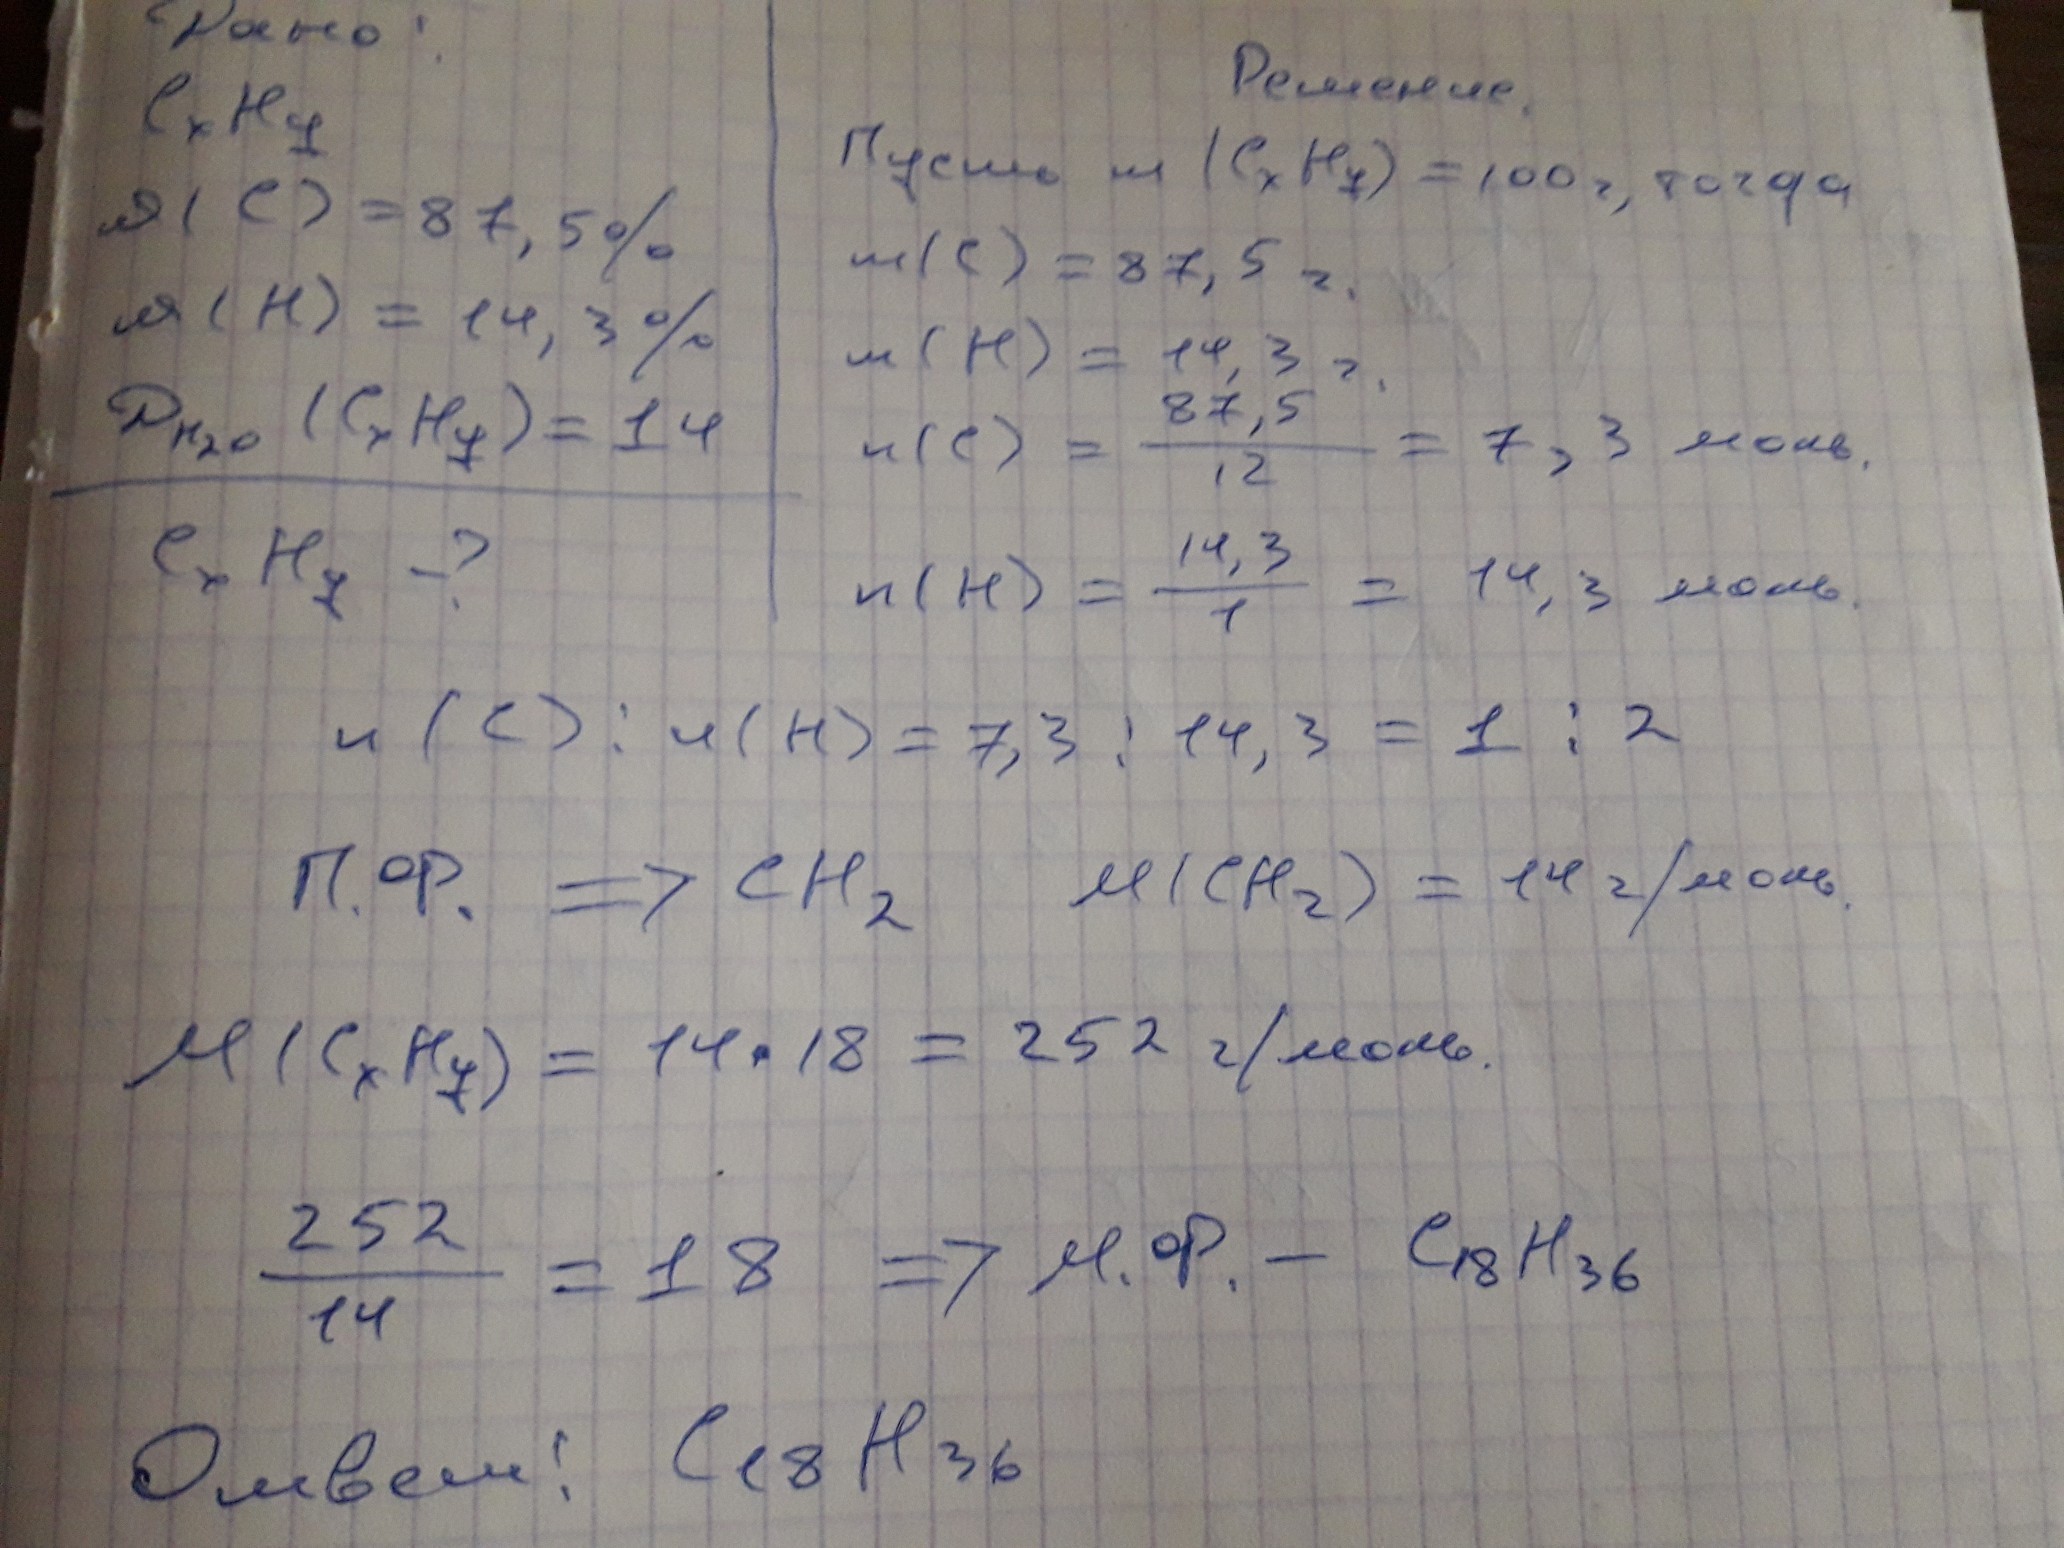 Дано:
CxHy
ω(C) = 87,5%
ω(H) = 14,3%
D H2O (CxHy) = 14
CxHy -?
Решение.
Пусть m (CxHy) = 100 г, тогда
m(C) = 87,5 г.
m(H) = 14,3 г.
n(C) = 87,5/12 = 7,3 моль.
n(H) = 14,3/1 = 14,3 моль.
n(C) : n(H) = 7,3 : 14,3 = 1 : 2
П.Ф. => CH2 M(CH2) = 14 г/моль.
M(CxHy) = 14·18 = 252 г/моль.
252/14 = 18 => М.Ф. – C18H36
Ответ: C18H36